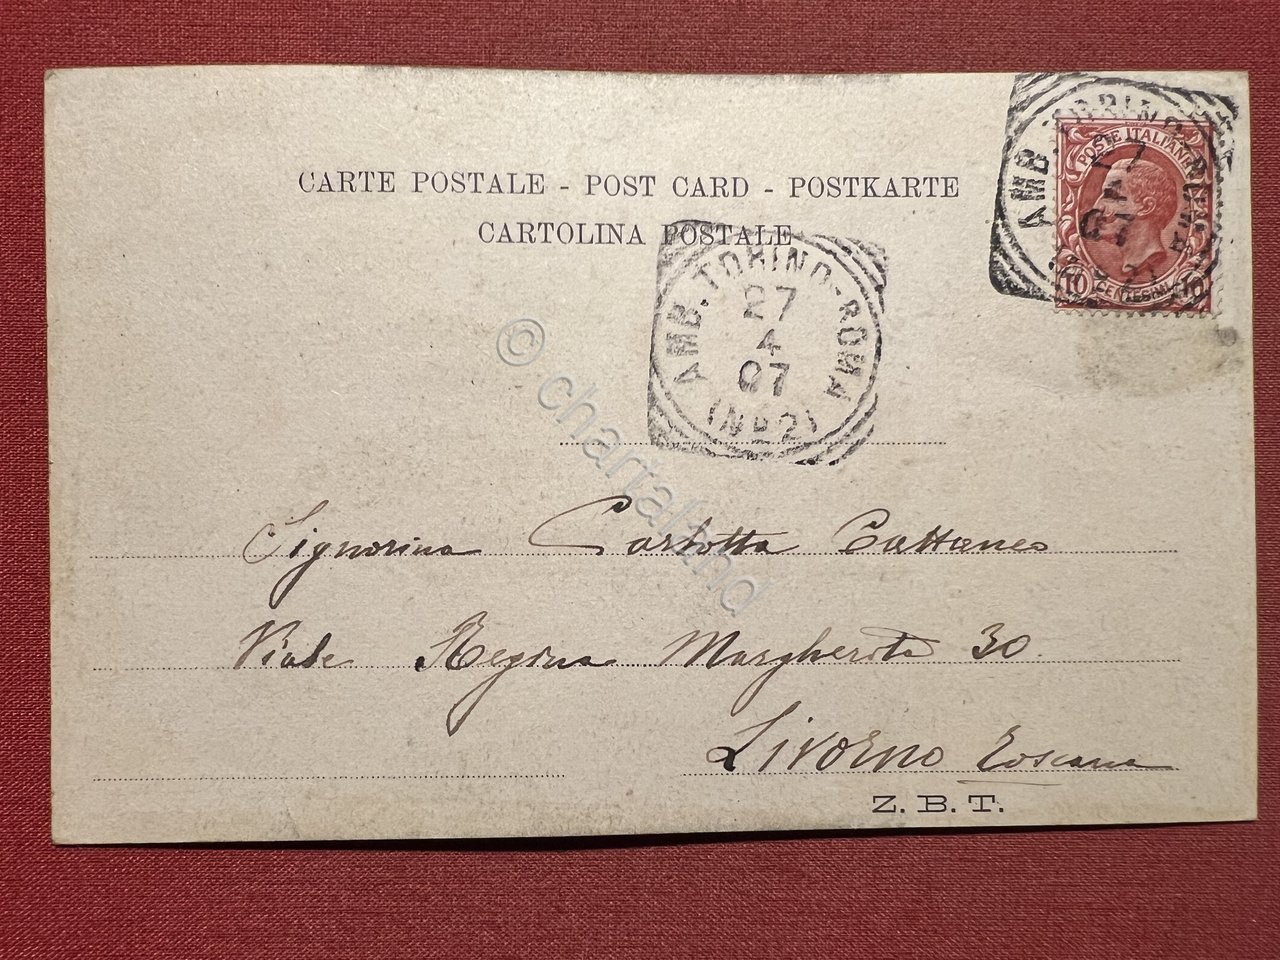 CARTE POSTALE - POST CARD - POSTKARTE
CARTOLINA POSTALE
AMB. TORINO-ROMA
27
4
07
(Nº2)
AMB. TORINO-ROMA
27
4
07
POSTE ITALIANE
10 CENTESIMI 10
© chartaland
Signorina Carlotta Cattaneo
Viale Regina Margherita 30.
Livorno Toscana
Z. B. T.